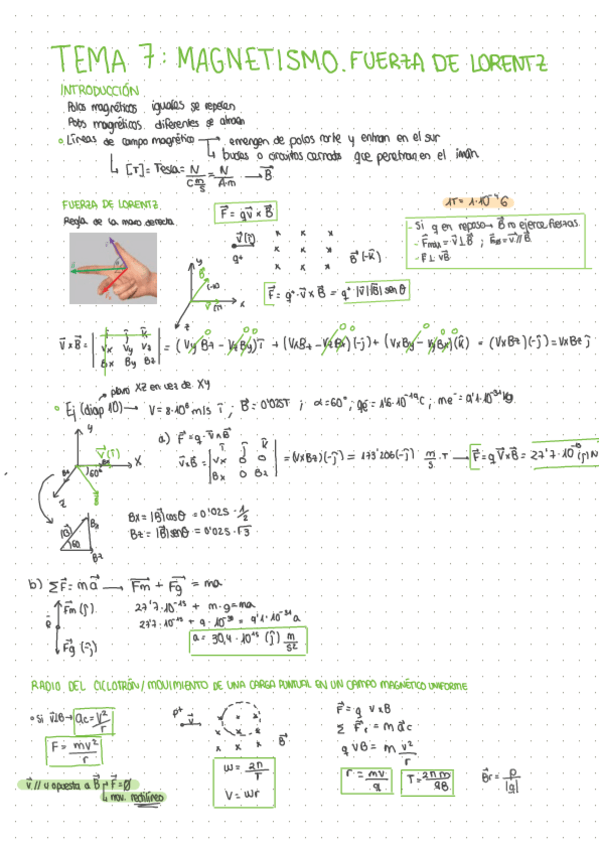 TEMA 7: MAGNETISMO. FUERZA DE LORENTZ
INTRODUCCIÓN
Polos magnéticos iguales se repelen
Polos magnéticos diferentes se atraen
Líneas de campo magnético → emergen de polos norte y entran en el sur
↳ bucles o circuitos cerrados que penetran en el imán.
↳ [T] = Tesla = N / C m/s = N / A·m → B⃗
FUERZA DE LORENTZ
Regla de la mano derecha.
F⃗ = q v⃗ x B⃗
1T = 1·10⁻⁴ G
- Si q en reposo → B⃗ no ejerce fuerzas
- F⃗máx = v⃗ ⊥ B⃗ ; = v⃗ // B⃗
- F ⊥ vB⃗
v⃗ (i⃗)
q⁺
B⃗ (-k⃗)
F⃗ = q⁺·v⃗ x B⃗ = q⁺ |v⃗||B⃗| sen θ
v⃗ x B⃗ = | i j k ; Vx Vy Vz ; Bx By Bz | = (Vy Bz - Vz By) i⃗ + (VxBz - VzBx)(-j⃗) + (VxBy - VyBx)(k⃗) = (VxBz)(-j⃗) = VxBz j⃗
plano XZ en vez de XY
Ej (diap 10) → V = 8·10⁶ m/s i⃗ ; B⃗ = 0'025T ; α = 60° ; qe = 1'6·10⁻¹⁹C ; me = 9'1·10⁻³¹ kg
a) F⃗ = q · v⃗ ∧ B⃗
v⃗ x B⃗ = | i j k ; Vx 0 0 ; Bx 0 Bz | = (VxBz)(-j⃗) = 173'206 (-j⃗) m/s · T → F⃗ = q v⃗ x B⃗ = 27'7·10⁻¹⁵ (j⃗) N
y
v⃗ (i⃗)
X
60°
Z
Bx = |B⃗| cos θ = 0'025 · 1/2
Bz = |B⃗| sen θ = 0'025 · √3
|B⃗|
60
Bz
b) ΣF⃗ = m a⃗ → F⃗m + F⃗g = ma
F⃗m (j⃗)
27'7·10⁻¹⁵ + m·g = ma
e
27'7·10⁻¹⁵ + 9·10⁻³⁰ = 9'1·10⁻³¹ a
F⃗g (-j⃗)
a = 30,4·10¹⁵ (j⃗) m/s²
RADIO DEL CICLOTRÓN / MOVIMIENTO DE UNA CARGA PUNTUAL EN UN CAMPO MAGNÉTICO UNIFORME
Si v⃗⊥B → ac = v²/r
F = mv²/r
v⃗ // u opuesta a B⃗ → F⃗ = 0
↳ mov. rectilíneo
p⁺
v⃗
B⃗
W = 2π/T
V = Wr
F⃗ = q v x B
Σ F⃗r = m a⃗c
q v B = m v²/r
r = mv/q
T = 2πm/qB
Br = p/|q|